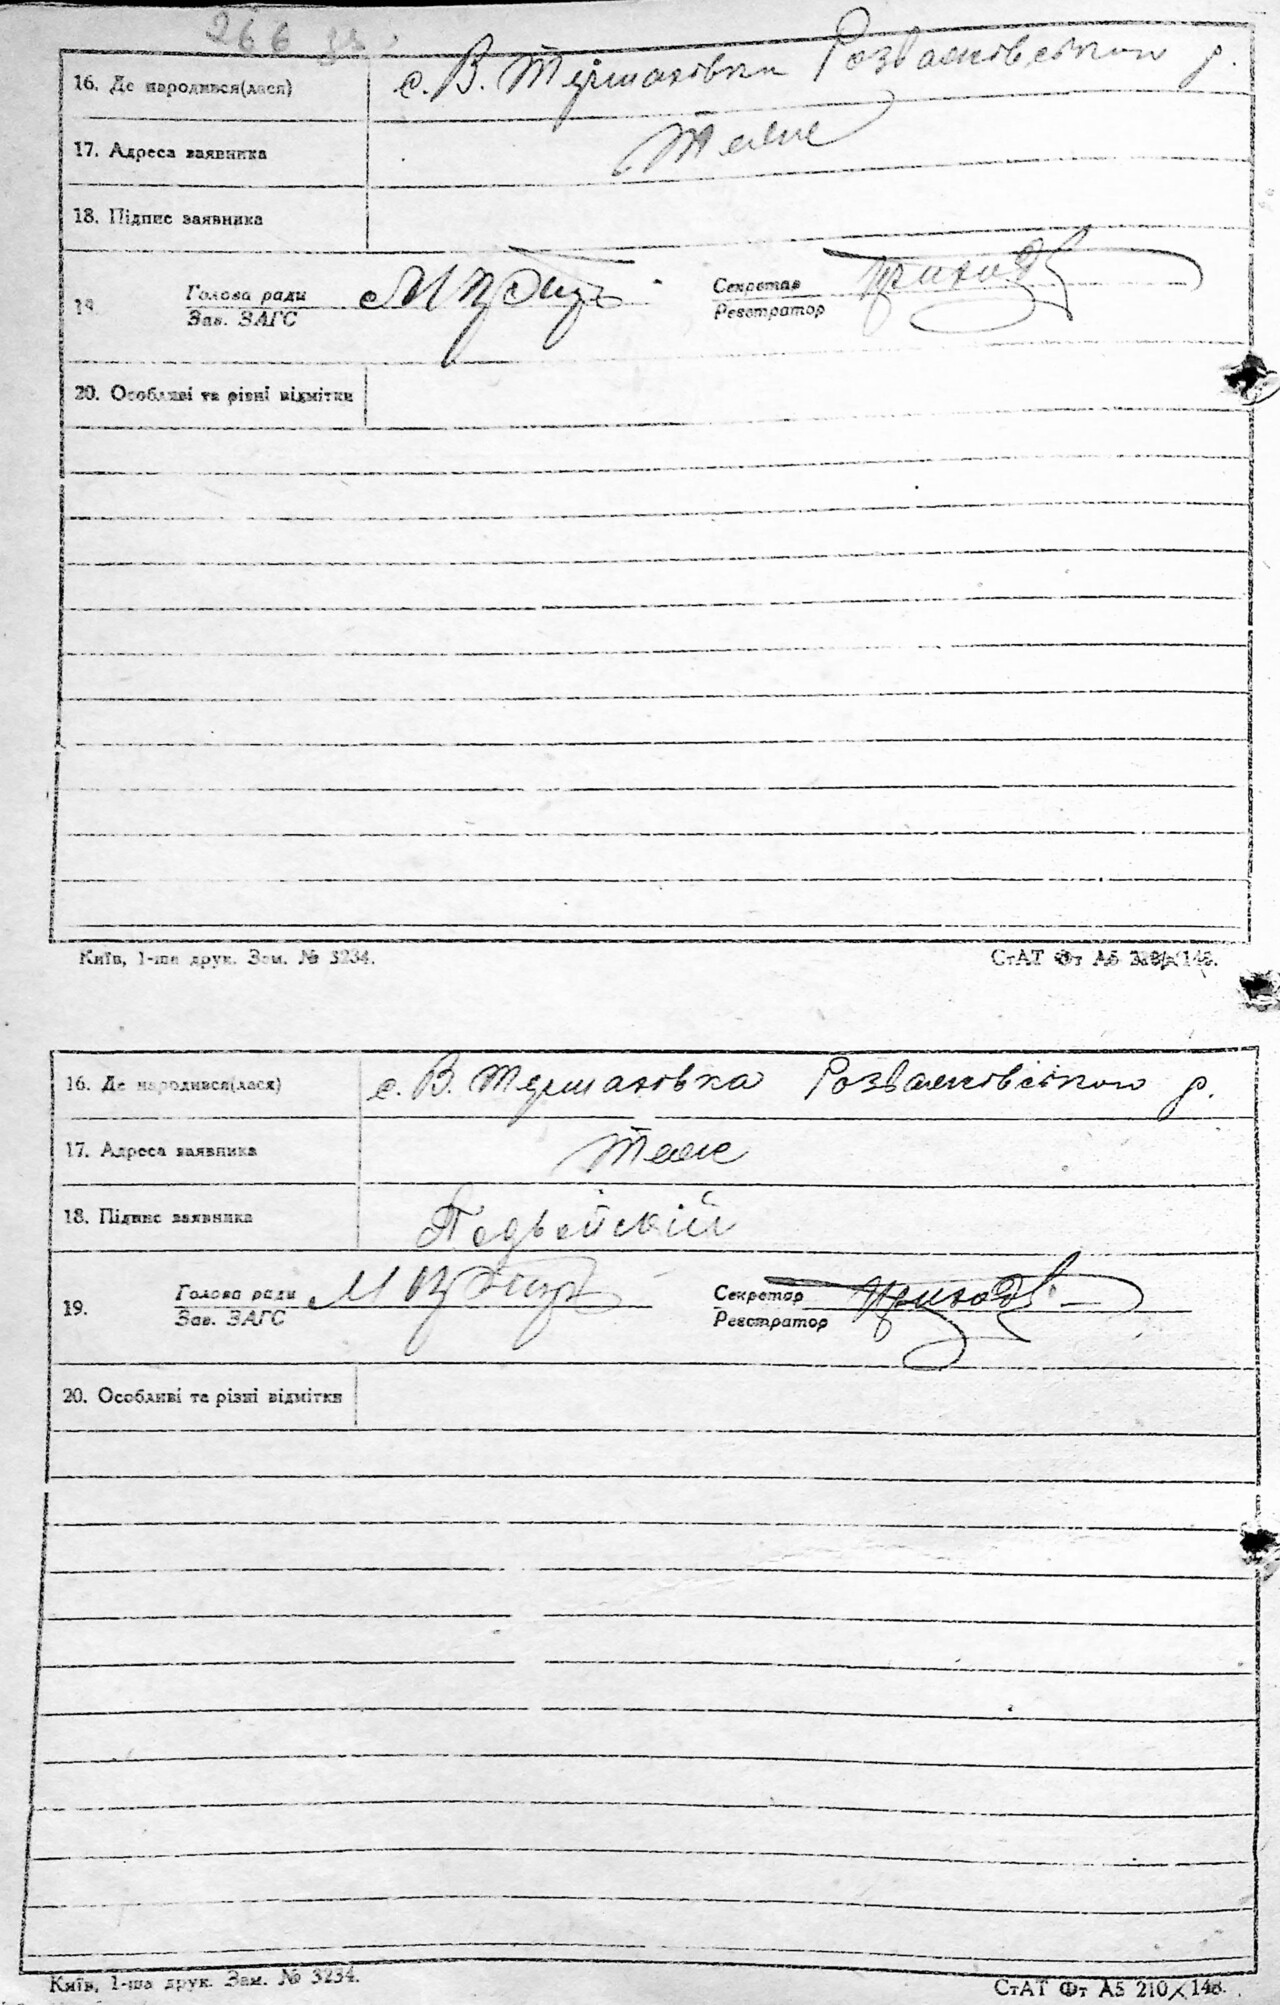 266 зв.
16. Де народився(лася) с. В. Термаховка Розважовського р.
17. Адреса заявника Теж
18. Підпис заявника
19. Голова ради Секретар
Зав. ЗАГС Реєстратор
20. Особливі та різні відмітки
Київ, 1-ша друк. Зам. № 3234.
СтАТ Фт А5 210×148.
16. Де народився(лася) с. В. Термаховка Розважовського р.
17. Адреса заявника Теж
18. Підпис заявника
19. Голова ради Секретар
Зав. ЗАГС Реєстратор
20. Особливі та різні відмітки
Київ, 1-ша друк. Зам. № 3234.
СтАТ Фт А5 210×148.